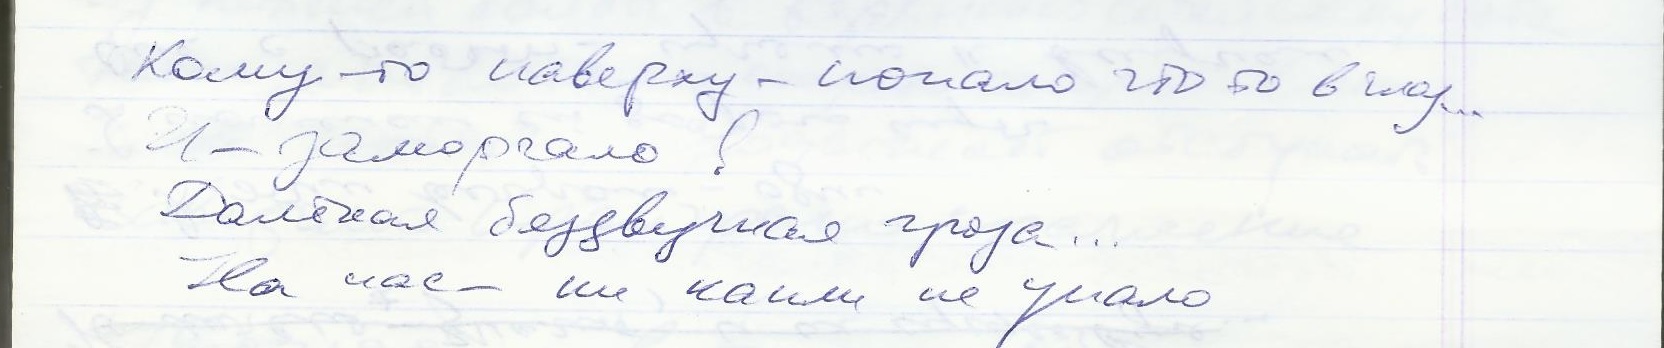 Кому-то наверху - попало что то в глаз...
И - заморгало!
Далёкая беззвучная гроза...
На нас - ни капли не упало